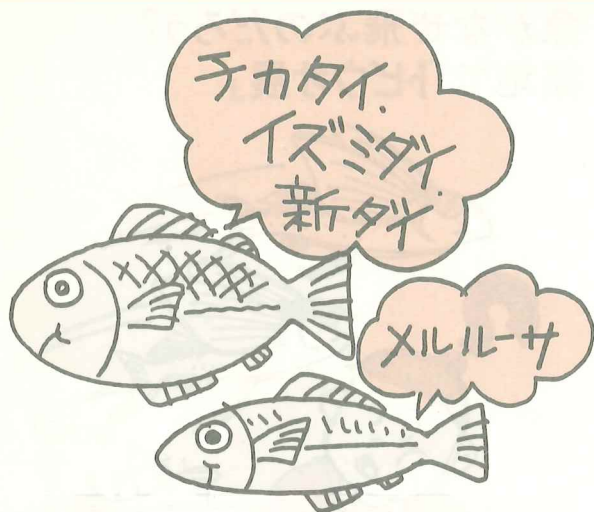 チカダイ.
イズミダイ.
新ダイ
メルルーサ